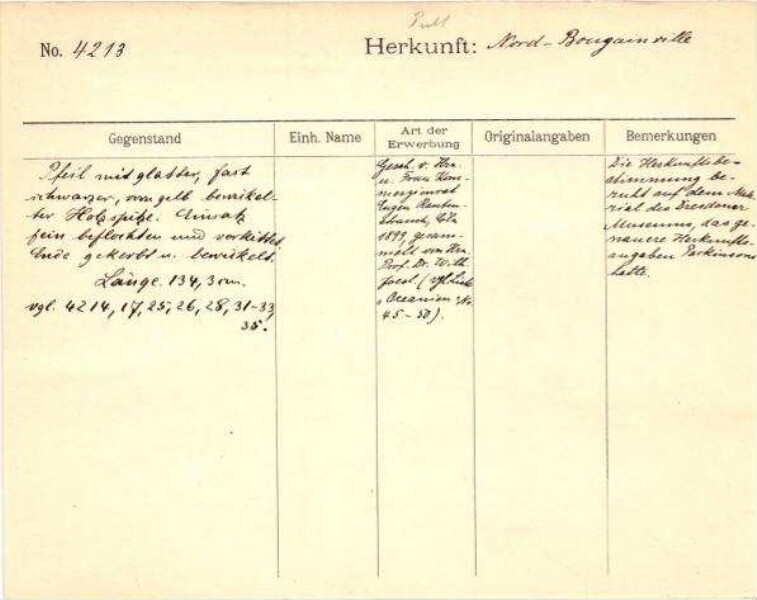 No. 4213
Herkunft: Nord-Bougainville
Gegenstand
Einh. Name
Art der
Erwerbung
Originalangaben
Bemerkungen
Pfeil mit glatter, fast
schwarzer, vorn gelb bewickel-
ter Holzspitze. Einsatz
fein beflochten und verkittet.
Ende gekerbt u. bewickelt.
Länge. 134,3 cm.
vgl. 4214, 17, 25, 26, 28, 31-33,
35.
Gesch. v. Hrn.
u. Frau Kom-
merzienrat
Eugen Rauten-
strauch, Cöln
1899, gesam-
melt von Hrn.
Prof. Dr. Wilh.
Joest. (vgl. Liste
Oceanien No
45-50).
Die Herkunftsbe-
stimmung be-
ruht auf dem Mate-
rial des Dresdener
Museums, das ge-
nauere Herkunfts-
angaben Parkinsons
hatte.